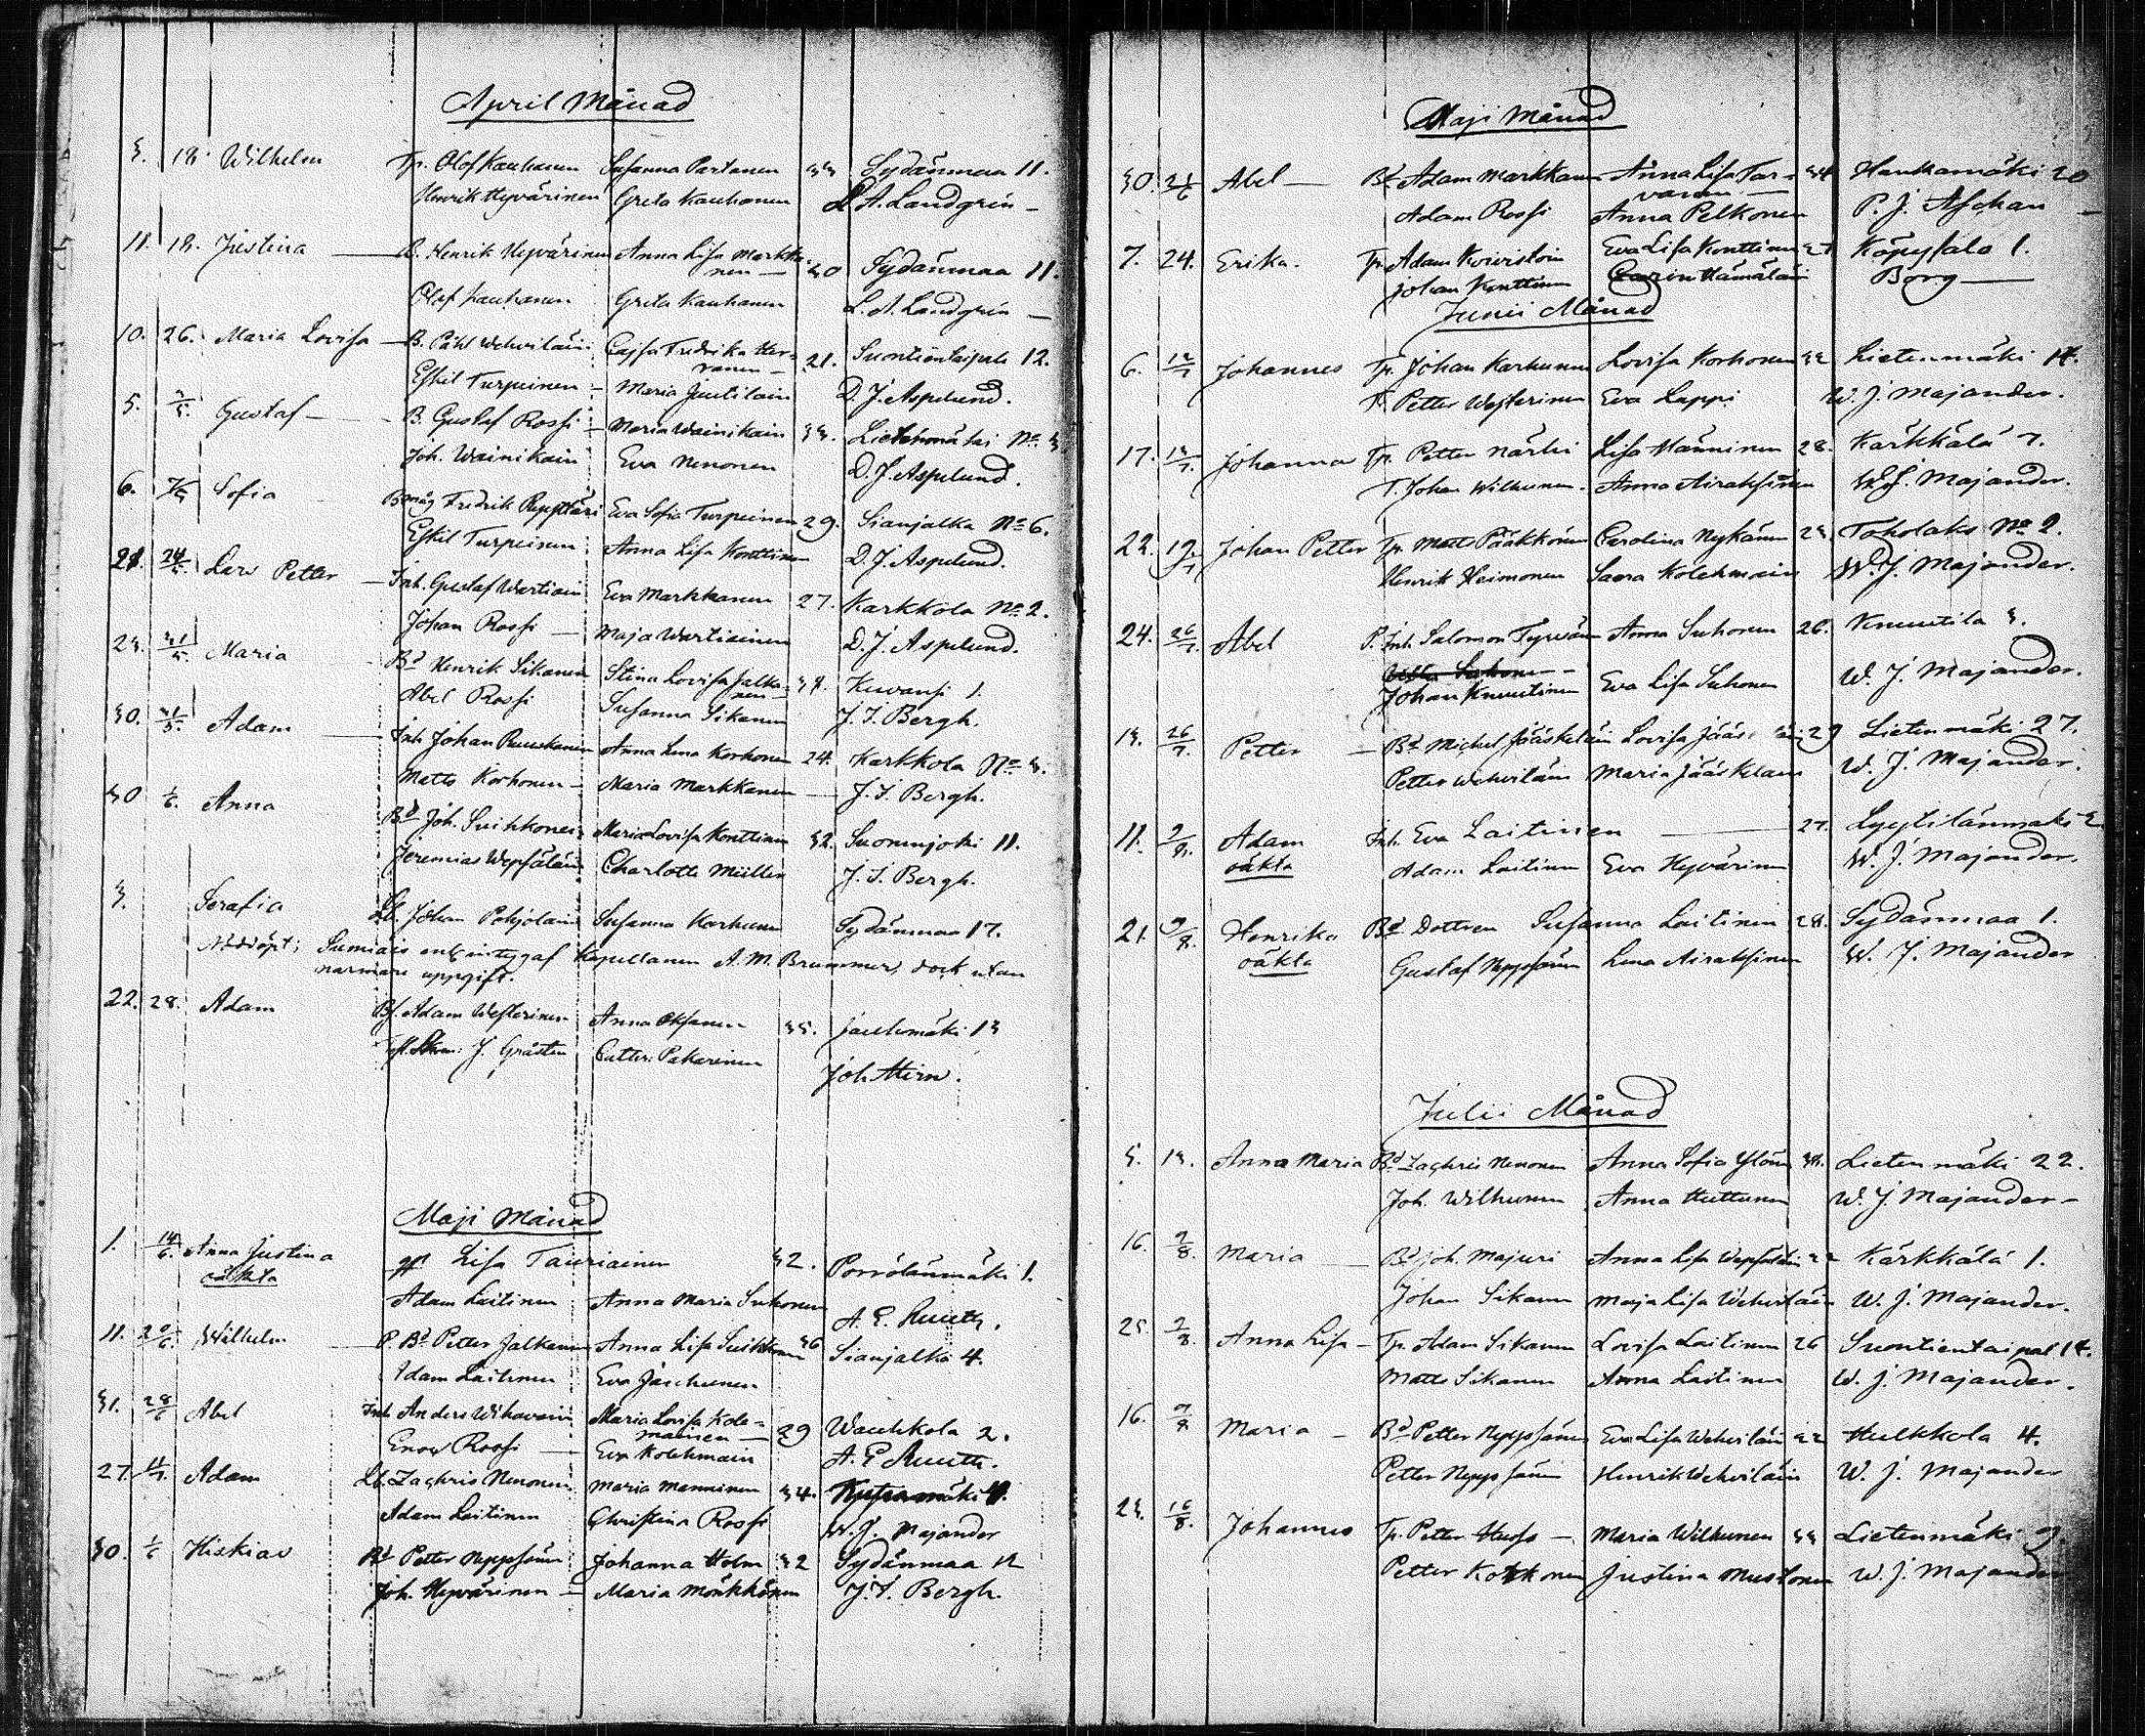 April Månad
3. 18. Wilhelm Tp. Olof Kauhanen Susanna Partanen 33 Sydänmaa 11.
Henrik Hyvärinen Greta Kauhanen L. A. Landgrén
11. 18. Justina B. Henrik Hyvärinen Anna Lisa Markka-
nen 30 Sydänmaa 11.
Olof Kauhanen Greta Kauhanen L. A. Landgrén
10. 26. Maria Lovisa B. Påhl Wehviläin Cajsa Fredrika Her-
ranen 21. Suontientaipale 12.
Eskil Turpeinen Maria Juutilain D. J. Aspelund.
5. 2/5. Gustaf B. Gustaf Rossi Maria Wainikain 33. Lietenmäki No 3
Joh. Wainikain Eva Nenonen D. J. Aspelund.
6. Sofia Bmåg Fredrik Eva Sofia Turpeinen 29. Sianjalka No 6.
Eskil Turpeinen Anna Lisa Konttinen D. J. Aspelund.
21. 24/5. Lars Petter Inh. Gustaf Wartiain Eva Markkanen 27. Karkkola No 2.
Johan Rossi Maja Wartiainen D. J. Aspelund.
23. 31/5. Maria Bd Henrik Sikanen Stina Lovisa Jalka-
nen 38. Kuvansi 1.
Abel Rossi Susanna Sikanen J. I. Bergh.
30. 31/5. Adam Inh. Johan Ruuskanen Anna Lena Korhonen 24. Karkkola No 3.
Matts Korhonen Maria Markkanen J. I. Bergh.
30 1/6. Anna Bd Joh. Suihkonen Maria Lovisa Konttinen 32. Suonnjoki 11.
Jeremias Wepsäläin Charlotte Müller J. I. Bergh.
3. Serafia Lb. Johan Pohjolain Susanna Karhunen Sydänmaa 17.
Nöddöpt i Sumiais enl. intygaf Kapellanen A. M. Brummer, dock utan
närmare uppgift.
22. 28. Adam Bf. Adam Westerinen Anna Oksanen 35. Jauhomäki 13
J. Gråsten Cathr: Pakarinen Joh. Hirn.
Maji Månad
1. 14/6. Anna Justina
oäkta
Lisa Tauriainen 32. Porrolänmäki 1.
Adam Laitinen Anna Maria Suhonen A. E. Ruuth.
11. 20/6. Wilhelm P. Bd Petter Jalkanen Anna Lisa Suihkonen 36 Sianjalka 4.
Adam Laitinen Eva
31. 28/6 Abel Inh. Anders Wihavain Maria Lovisa Kole-
mainen 29 Wauhkola 2.
Enow Rossi Eva Kolehmain A. E. Ruuth.
27. 11/7. Adam Lb. Zachris Nenonen Maria Manninen 34. 4.
Adam Laitinen Christina Rossi W. J. Majander
30. 1/6 Hiskias Bd Petter Nyyssönen Johanna Holm 32 Sydänmaa 12
Joh. Hyvärinen Maria Mönkkönen J. I. Bergh.
Maji Månad
30. 21/6 Abel Bd Adam Markkanen Anna Lisa Tar-
vanen 34 Haukamäki 20
Adam Rossi Anna Pelkonen P. J. Aschan
7. 24. Erika. Tp. Adam Koivistoin Eva Lisa Konttinen 27 Köpysalo 1.
Johan Konttinen Carin Hämäläin Borg
Junii Månad
6. 12/7 Johannes Tp. Johan Karhunen Lovisa Korhonen 32 Lietenmäki 14.
T. Petter Westerinen Eva Lappi W. J. Majander.
17. 13/7. Johanna Tp. Petter Närhi Lisa Manninen 28. Kärkkälä 7.
T. Johan Wilhunen Anna Airaksinen W. J. Majander.
22. 19/7 Johan Petter Tp. Matts Pääkkönen Carolina Nykänen 23. Toholaks No 2.
Henrik Heimonen Saara Kolehmain W. J. Majander.
24. 26/7. Abel P. Inh. Salomon Tyrväin Anna Suhonen 26. Knuutila 3.
Johan Knuutinen Eva Lisa Suhonen W. J. Majander.
13. 26/7. Petter Bd Michel Jääskeläin Lovisa 29 Lietenmäki 27.
Petter Wehviläin Maria Jääskeläin W. J. Majander.
11. 9/8. Adam
oäkta
Inh. Eva Laitinen 27. Lyytilänmäki 2
Adam Laitinen Eva Hyvärinen W. J. Majander.
21. 9/8. Henrika
oäkta
Bd Dottren Susanna Laitinen 28. Sydänmaa 1.
Gustaf Nyyssönen Lena Airaksinen W. J. Majander
Julii Månad
5. 13. Anna Maria Bd Zachris Nenonen Anna Sofia Ylönen 38. Lietenmäki 22.
Joh. Wilhunen Anna Huttunen W. J. Majander
16. 2/8. Maria Bd Joh. Majuri Anna Lisa Wepsäläin 22 Kärkkälä 1.
Johan Sikanen Maja Lisa Wehviläin W. J. Majander.
25. 2/8. Anna Lisa Tp. Adam Sikanen Lovisa Laitinen 26 Suontientaipal 14.
Matts Sikanen Anna Laitinen W. J. Majander.
16. 9/8 Maria Bd Petter Nyyssönen Eva Lisa Wehviläin 22 Hulkkola 4.
Petter Nyyssönen Henrik Wehviläin W. J. Majander
23. 16/8. Johannes Tp. Petter Maria Wilhunen 33 Lietenmäki 9.
Petter Kokkonen Justina Mustonen W. J. Majander